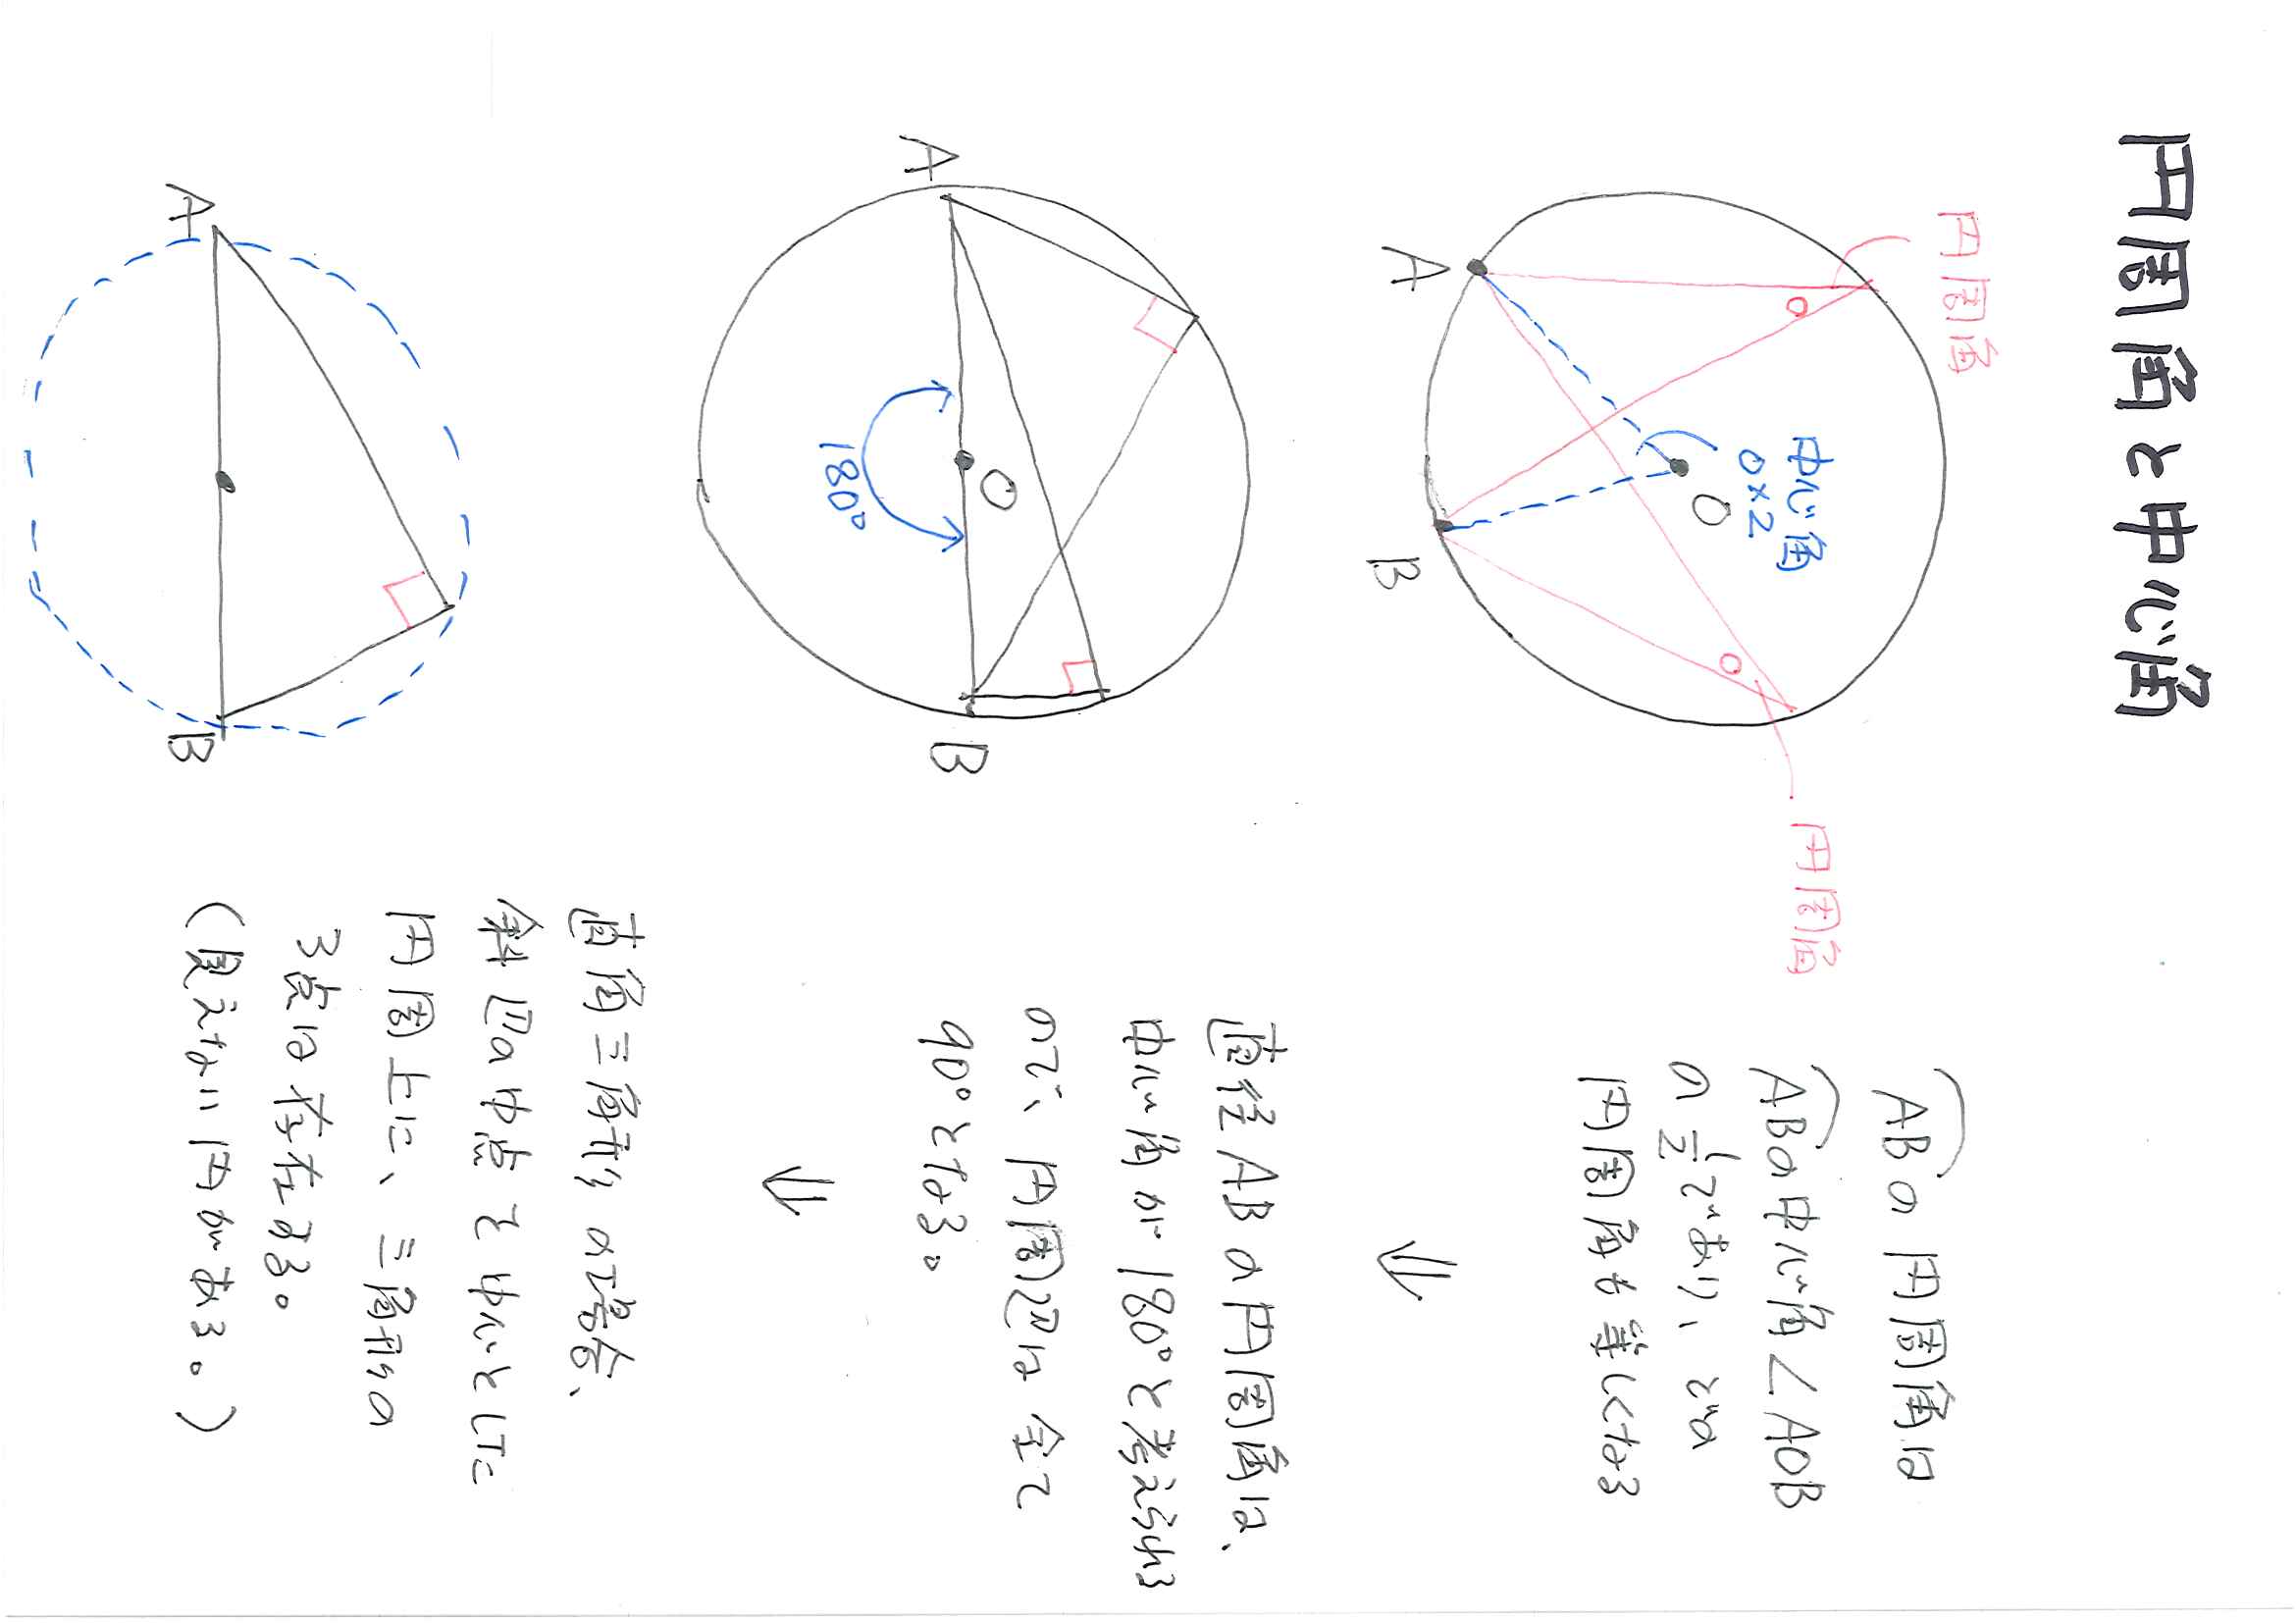 円周角と中心角
円周角
中心角
○×2
O
A
B
円周角
ABの円周角は
ABの中心角∠AOB
の1/2であり、どの
円周角も等しくなる
⇓
A
O
180°
B
直径ABの円周角は、
中心角が180°と考えられる
ので、円周辺は全て
90°となる。
⇓
A
B
直角三角形の場合、
斜辺の中点を中心とした
円周上に、三角形の
3点は存在する。
(見えない円がある。)